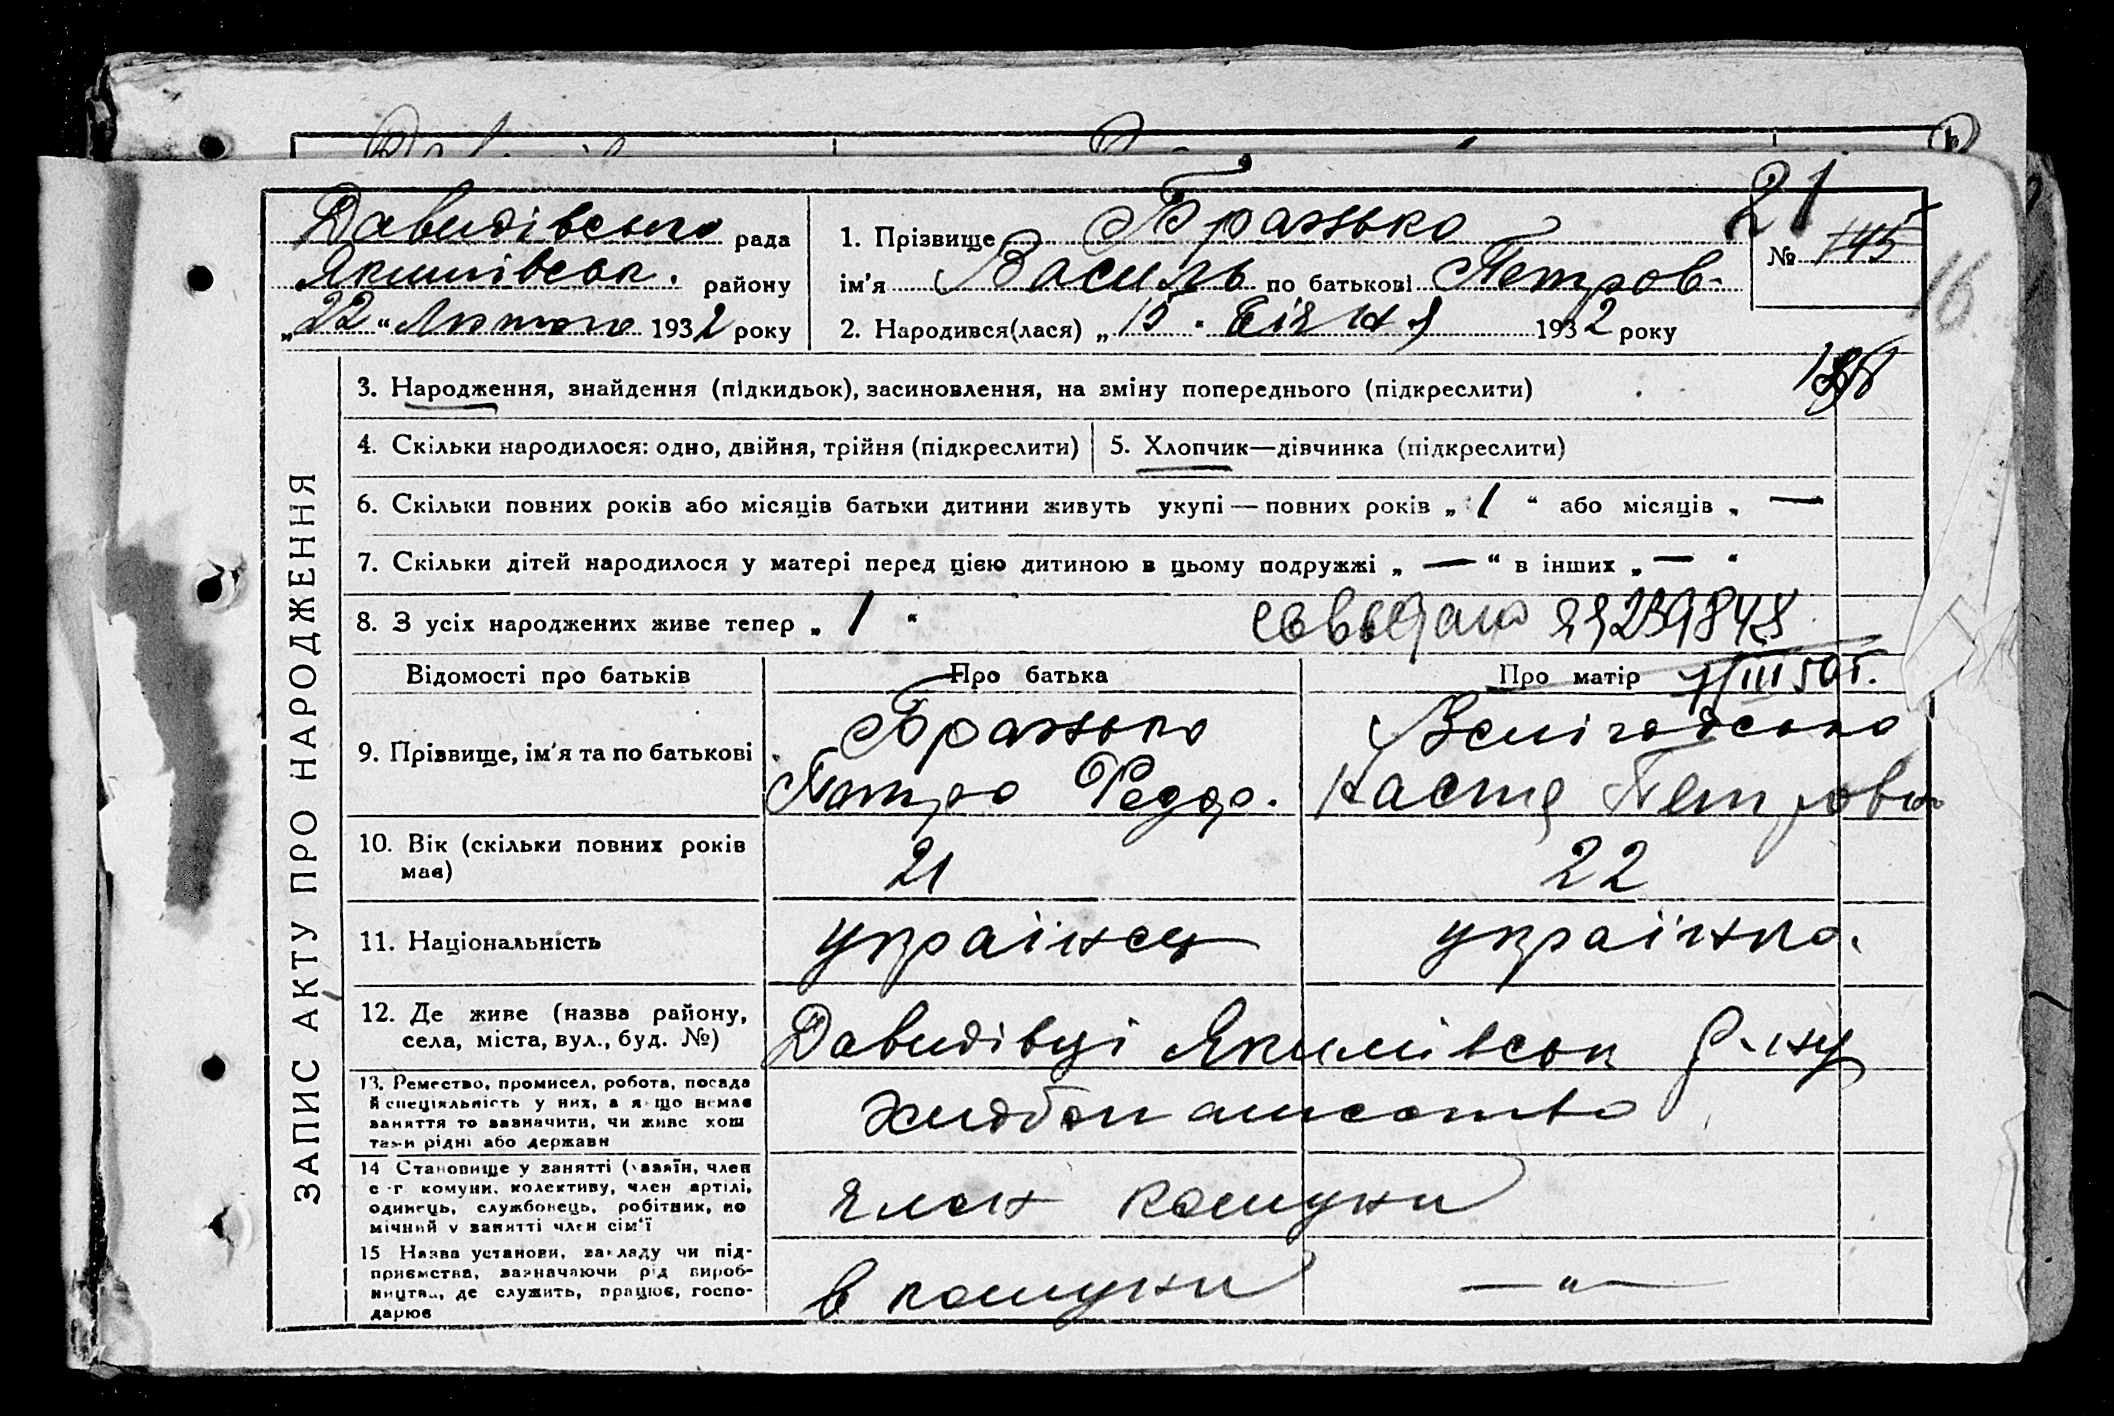 Давидівсько рада
Якимівськ. району
„22“ Лютого 1932 року
1. Прізвище Бражько
ім'я Василь по батькові Петров-
2. Народився(лася) „15“ Січня 1932 року
21
№ 145
16
ЗАПИС АКТУ ПРО НАРОДЖЕННЯ
3. Народження, знайдення (підкидьок), засиновлення, на зміну попереднього (підкреслити)
4. Скільки народилося: одно, двійня, трійня (підкреслити)
5. Хлопчик—дівчинка (підкреслити)
6. Скільки повних років або місяців батьки дитини живуть укупі — повних років „ 1 “ або місяців „ —
7. Скільки дітей народилося у матері перед цією дитиною в цьому подружжі „ — “ в інших „ — “
8. З усіх народжених живе тепер „ 1 “
239848
III 50г.
Відомості про батьків
Про батька
Про матір
9. Прізвище, ім'я та по батькові
Бражько
Петро Федор.
Велігодсько
Настя Петровно
10. Вік (скільки повних років
має)
21
22
11. Національність
українец
українка.
12. Де живе (назва району,
села, міста, вул., буд. №)
Давидівці Якимівськ р-ну
13. Ремество, промисел, робота, посада
й спеціяльність у них, а якщо немає
заняття то зазначити, чи живе кош
тами рідні або держави
хлібопашество
14 Становище у занятті (хазяїн, член
с-г комуни, колективу, член артілі,
одинець, службонець, робітник, по
мічний у занятті член сім'ї
член комуни
15 Назва установи, закладу чи під-
приємства, зазначаючи рід вироб-
ництва, де служить, працює, госпо-
дарює
в комуни
— „ —